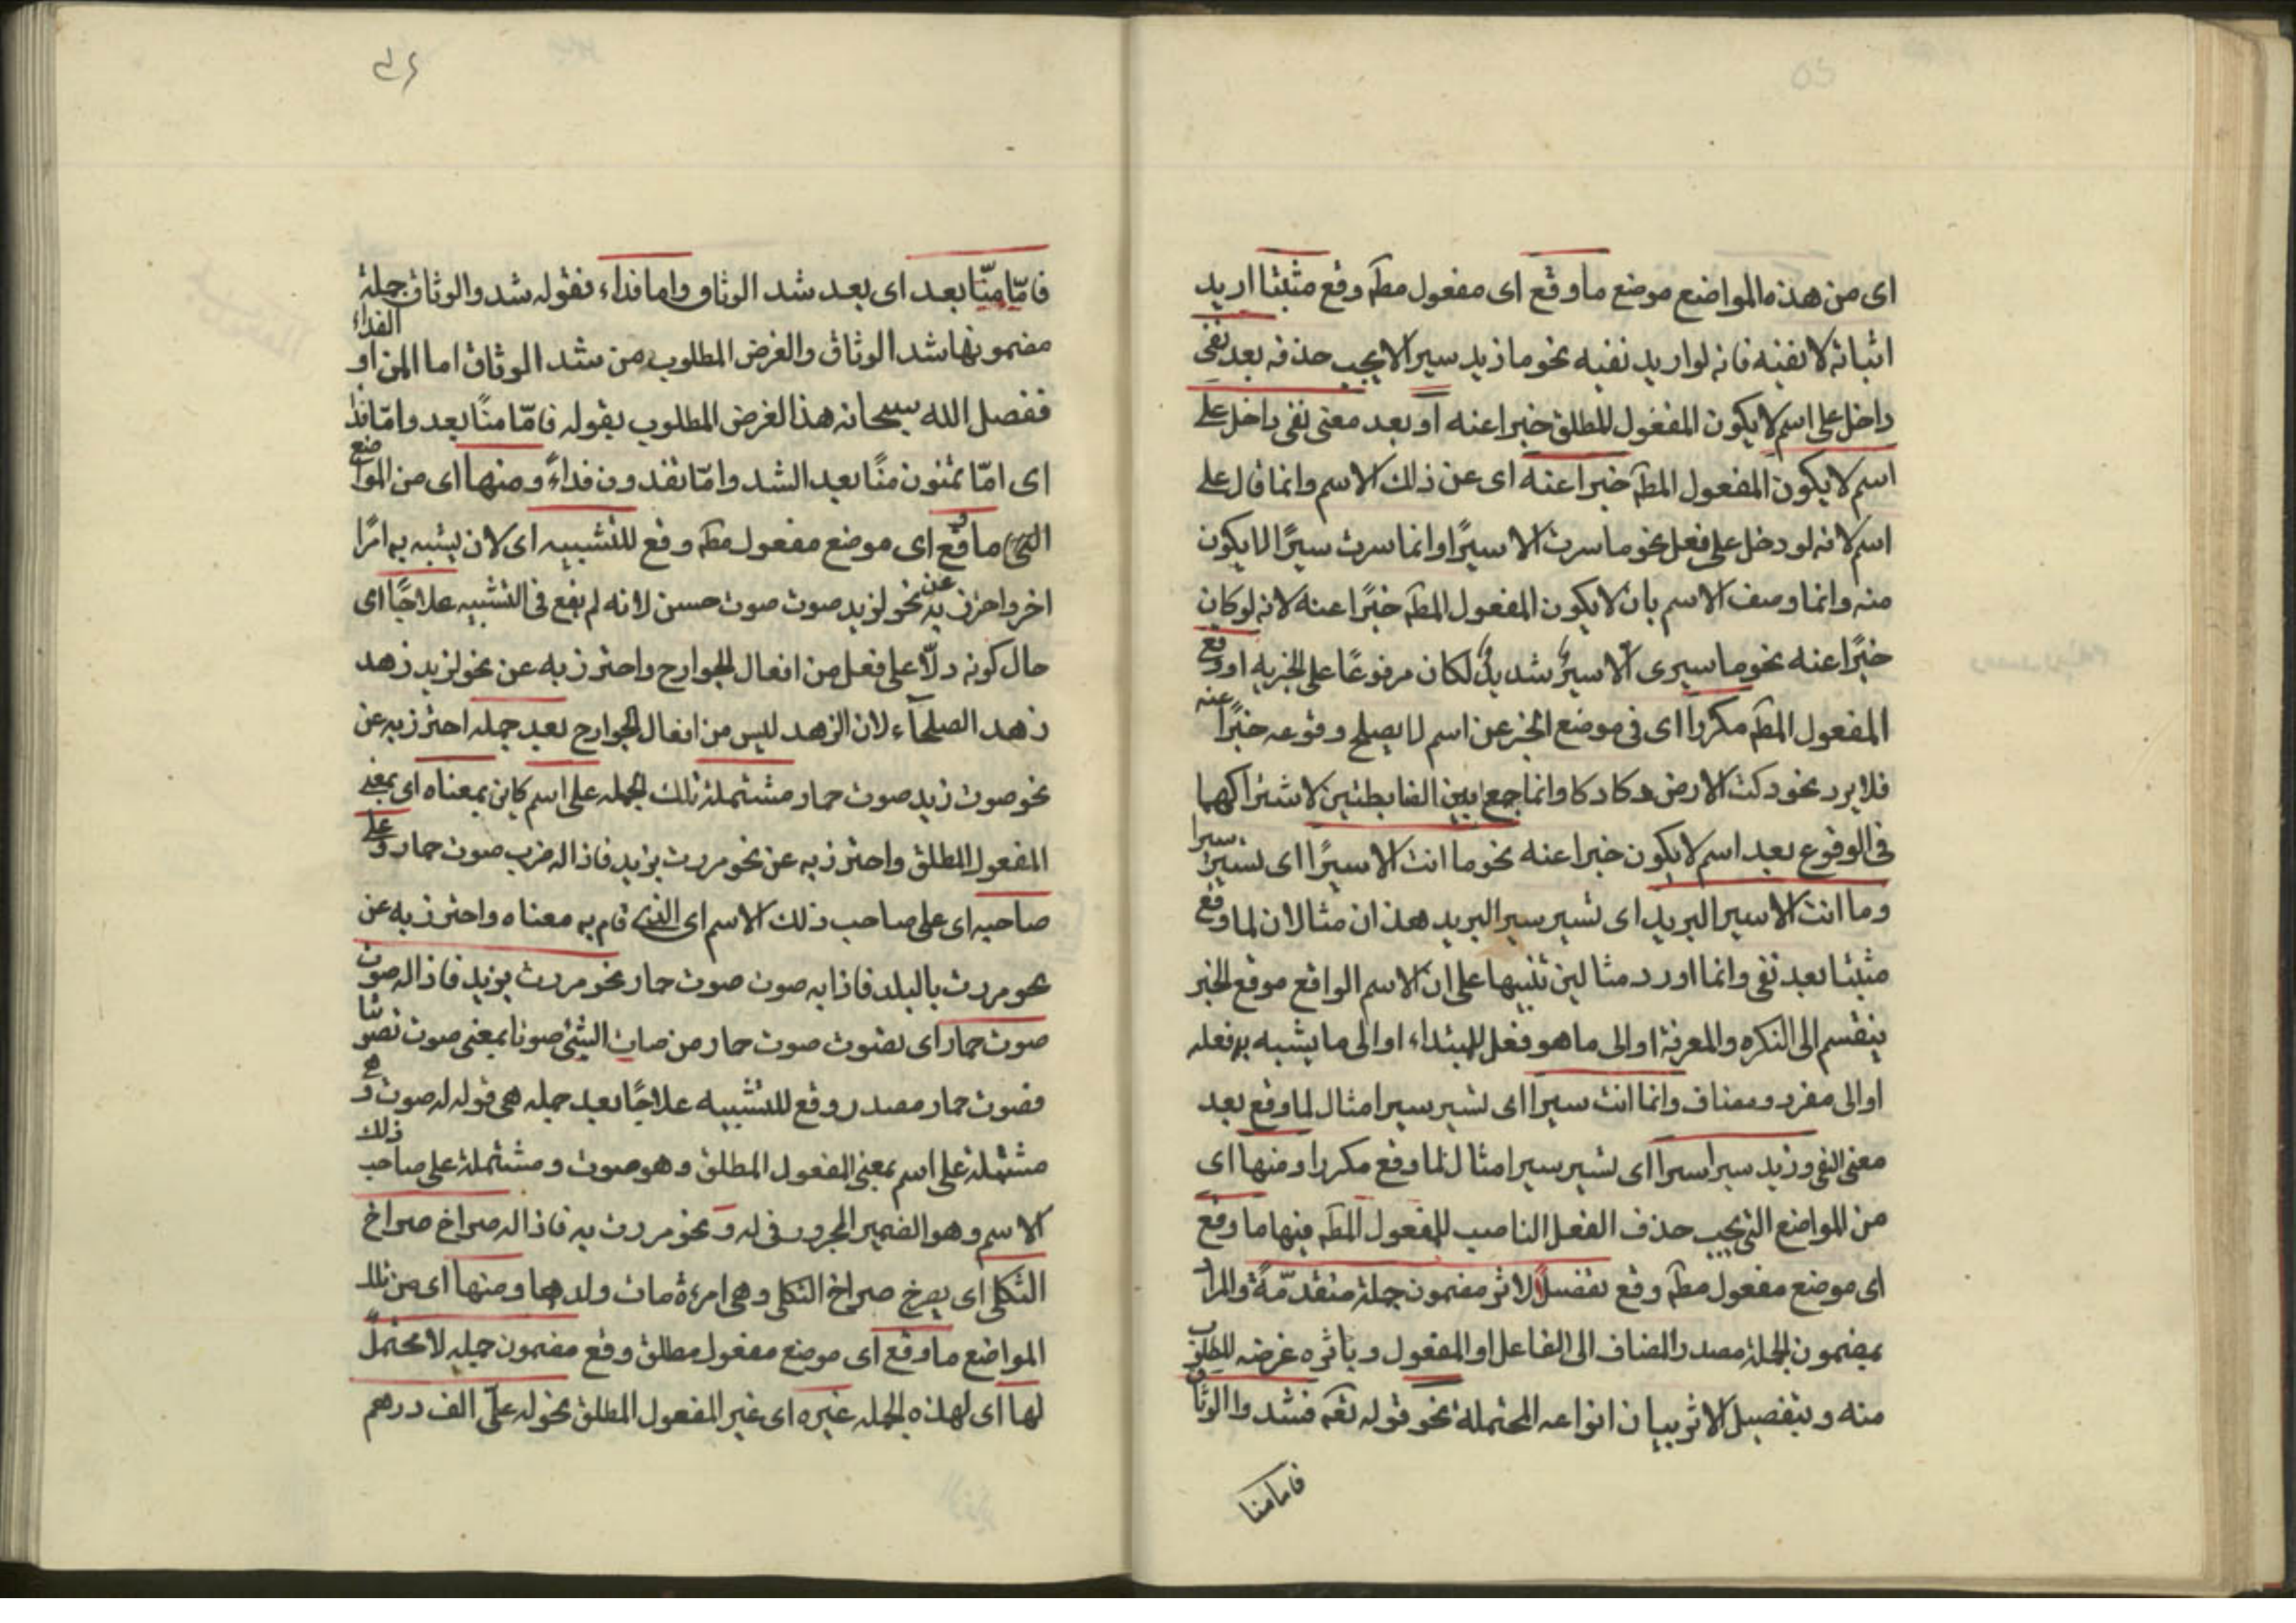 اى من هذه المواضع موضع ما وقع اى مفعول مطـ وقع مثبتا اريد
اثباته لا نفيه فانه لو اريد نفيه نحو ما زيد سيرا لا يجب حذفه بعد نفى
داخل على اسم لا يكون المفعول المطلق خبرا عنه او بعد معنى نفى داخل على
اسم لا يكون المفعول المطـ خبرا عنه اى عن ذلك الاسم وانما قال على
اسم لانه لو دخل على فعل نحو ما سرت الا سيرًا وانما سرت سيرًا لما يكون
منه وانما وصف الاسم بان لا يكون المفعول المطـ خبرًا عنه لانه لو كان
خبرًا عنه نحو ما سيرى الا سيرٌ شديدٌ لكان مرفوعًا على الخبريه او وقع
المفعول المطـ مكررا اى فى موضع الخبر عن اسم لا يصلح وقوعه خبرًا عنه
فلا يرد نحو دكت الارض دكا دكا وانما جمع بين الضابطتين لاشتراكهما
فى الوقوع بعد اسم لا يكون خبرا عنه نحو ما انت الا سيرًا اى تسير سيرا
وما انت الا سير البريد اى تسير سير البريد هذان مثالان لما وقع
مثبتا بعد نفى وانما اورد مثالين تنبيها على ان الاسم الواقع موقع الخبر
ينقسم الى النكره والمعرفة او الى ما هو فعل للمبتداء او الى ما يشبه به فعله
او الى مفرد ومضاف وانما انت سيرا اى تسير سيرا مثال لما وقع بعد
معنى النفى وزيد سيرا سيرا اى تسير سيرا مثال لما وقع مكررا ومنها اى
من المواضع التى يجب حذف الفعل الناصب للمفعول المطـ فيها ما وقع
اى موضع مفعول مطـ وقع تفصيلًا لاثر مضمون جملة متقدّمةً والمراد
بمضمون الجملة مصدر المضاف الى الفاعل او المفعول وباثره غرضه المطلوب
منه وبتفصيل الاثر بيان انواعه المحتملة نحو قوله تعـ فشدوا الوثاق
فاما منا
فامّا منّا بعد اى بعد شد الوثاق واما فداء فقوله شدوا الوثاق جملة
مضمونها شد الوثاق والغرض المطلوب من شد الوثاق اما المن او الفداء
ففصل الله سبحانه هذا الغرض المطلوب بقوله فامّا منًا بعد وامّا فدا
اى امّا تمنون منًا بعد الشد وامّا تفدون فداءً ومنها اى من المواضع
التى ما وقع اى موضع مفعول مطـ وقع للتشبيه اى لان يشبه به امرًا
اخر واحترز به عن نحو لزيد صوت صوت حسن لانه لم يقع فى التشبيه علاجًا اى
حال كونه دلّا على فعل من افعال الجوارح واحترز به عن نحو لزيد زهد
زهد الصلحآء لان الزهد ليس من افعال الجوارح بعد جمله احترز به عن
نحو صوت زيد صوت حمار مشتملة تلك الجمله على اسم كاين بمعناه اى بمعنى
المفعول المطلق واحترز به عن نحو مررت بزيد فاذا له ضرب صوت حمار وعلى
صاحبه اى على صاحب ذلك الاسم اى الذى قام به معناه واحترز به عن
نحو مررت بالبلد فاذا به صوت صوت حمار نحو مررت بزيد فاذا له صوت
صوت حمار اى يصوت صوت حمار من صات الشئ صوتا بمعنى صوت تصويتا
فصوت حمار مصدر وقع للتشبيه علاجًا بعد جمله هى قوله له صوت وهى
مشتملة على اسم بمعنى المفعول المطلق وهو صوت ومشتملة على صاحب ذلك
الاسم وهو الضمير المجرور فى له ونحو مررت به فاذا له صراخ صراخ
الثكلى اى يصرخ صراخ الثكلى وهى امرءة مات ولدها ومنها اى من تلك
المواضع ما وقع اى موضع مفعول مطلق وقع مضمون جمله لا محتملً
لها اى لهذه الجمله غيره اى غير المفعول المطلق نحو له علىّ الف درهم